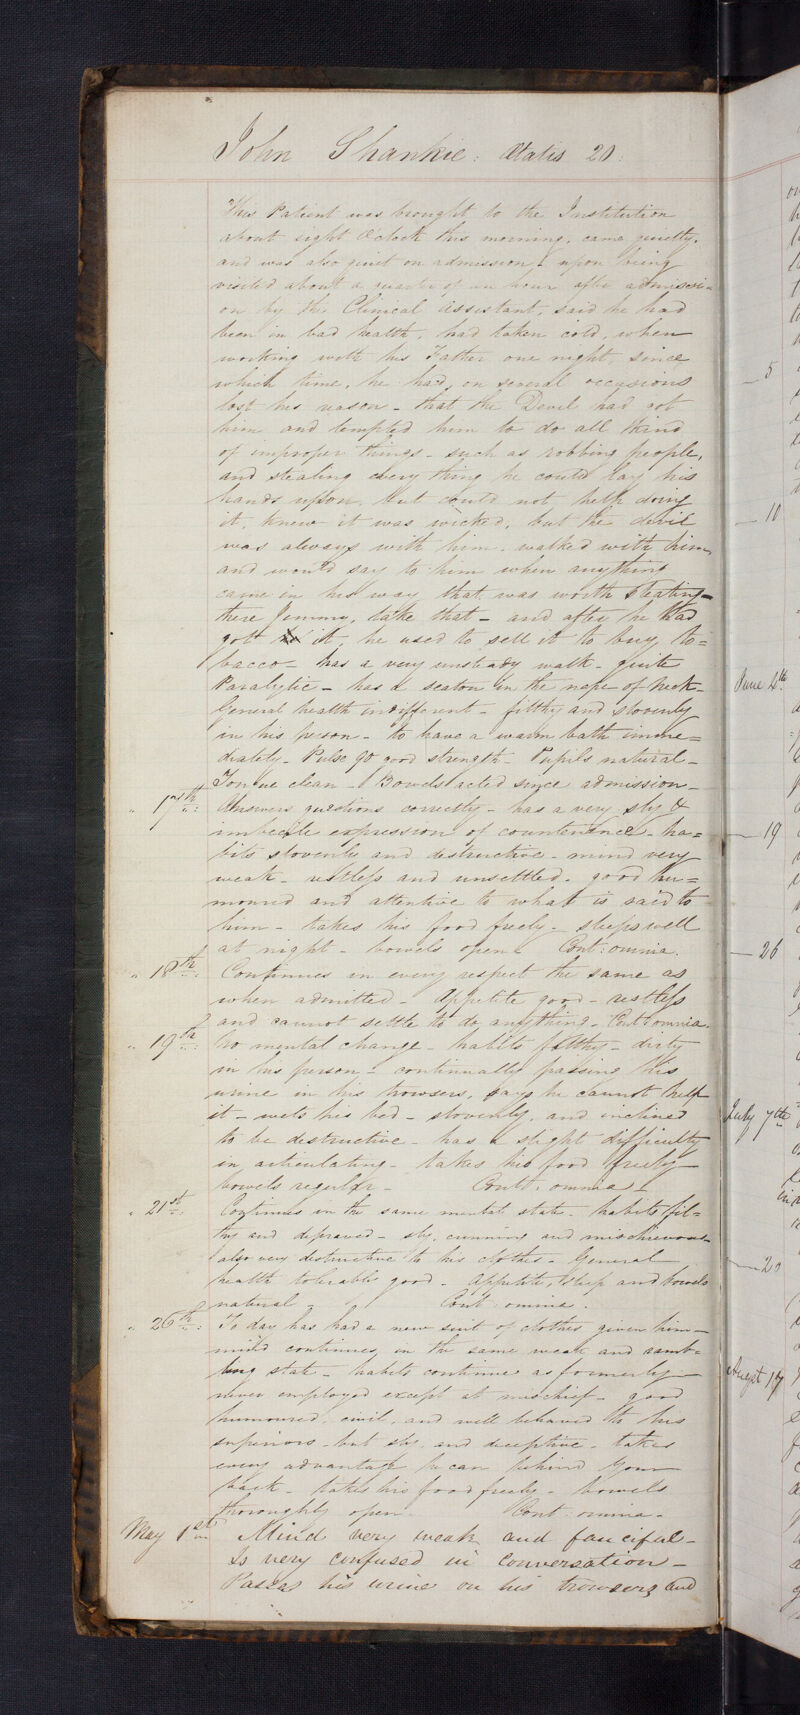 John Shankie: Ætatis 20:
This Patient was brought to the Institution
about eight O'clock this morning, came quietly,
and was also quiet on admission - upon being
visited about a quarter of an hour after admissi=
on by the Clinical Assistant, said he had
been in bad health, had taken cold, when
working with his Father one night, since
which time, he had, on several occasions
lost his reason - that the Devil had got
him and tempted him to do all kind
of improper things - such as robbing people,
and stealing every thing he could lay his
hands upon, but could not help doing
it, knew it was wicked, but the devil
was always with him, walked with him,
and would say to him when anything
came in his way that was worth stealing -
there Jemmy, take that - and after he had
gott it, he used to sell it to buy to=
bacco - has a very unsteady walk - quite
Paralytic - has a seaton in the nape of Neck -
General health indifferent - filthy and slovenly
in his person - to have a warm bath imme=
diately - Pulse 90 good strength - Pupils natural -
Tongue clean - Bowels acted since admission -
" 17th: Answers questions correctly - has a very sly &
imbecile expression of countenance - ha=
bits slovenly and destructive - mind very
weak - restless and unsettled - good hu=
moured and attentive to what is said to
him - takes his food freely - sleeps well
at night - bowels open - Cont: omnia.
" 18th: Continues in every respect the same as
when admitted - Appetite good - restless
and cannot settle to do anything - Cont: omnia.
" 19th: No mental change - habits filthy - dirty
in his person - continually passing his
urine in his trowsers, says he cannot help
it - wets his bed - slovenly, and inclined
to be destructive - has a slight difficulty
in articulating - takes his food freely
bowels regular - Contr. omnia.
" 21st: Continues in the same mental state - habits fil=
thy and depraved - sly, cunning and mischievous -
also very destructive to his clothes - General
health tolerable good - Appetite, sleep and bowels
natural - Cont: omnia.
" 26th: To day has had a new suit of clothes given him -
mind continues in the same weak and ramb=
ling state - habits continue as formerly -
never employed except at mischief - good
humoured, civil, and well behaved to his
superiors - but sly, and deceptive - takes
every advantage he can behind your
back - takes his food freely - bowels
thoroughly open. Cont: omnia.
May 1st Mind very weak and fanciful -
Is very confused in conversation -
Passes his urine on his trowsers and
5
10
June 4th
19
26
July 7th
20
August 17